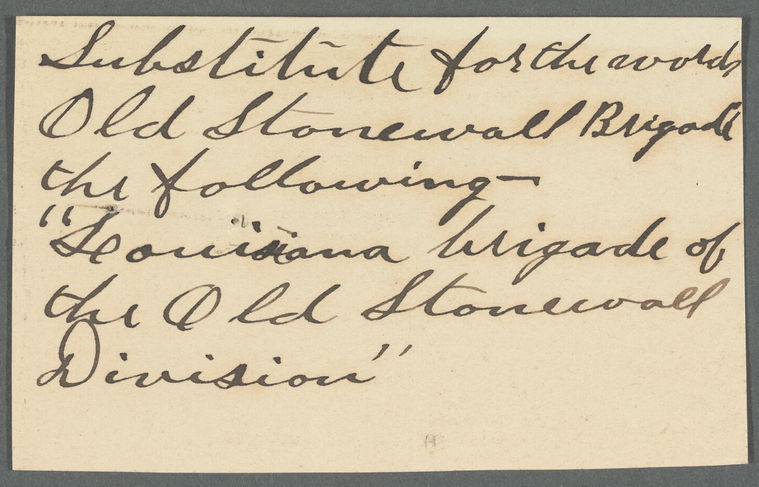 Substitute for the words
Old Stonewall Brigade
the following—
"Louisiana brigade of
the Old Stonewall
Division"